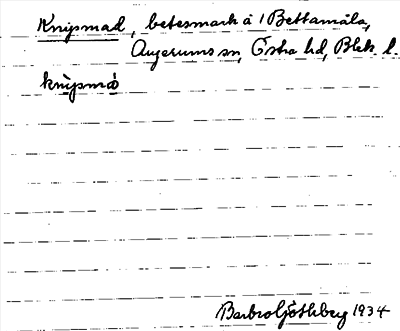 Knipsmad, betesmark å 1 Bettamåla,
Augerums sn, Östra hd, Blek. l.
knìpsmȧ
Barbro Götlberg 1934